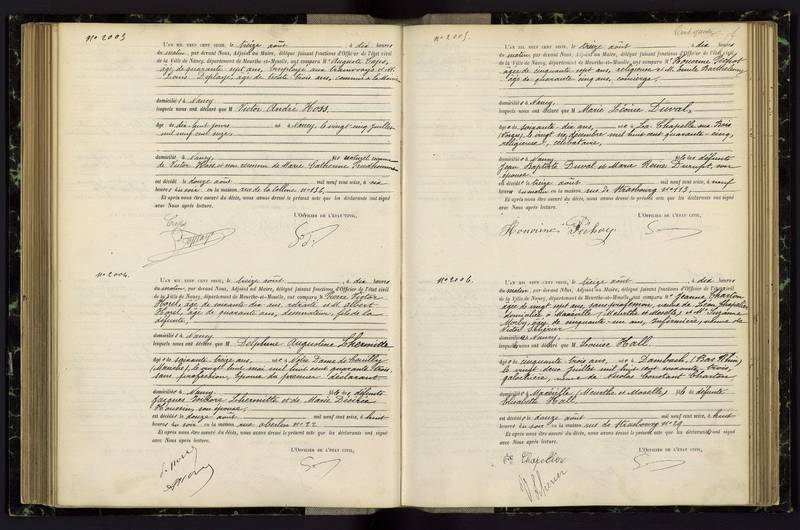 No 2003
L'AN MIL NEUF CENT SEIZE, le treize août, à dix heures
du matin, par devant Nous, Adjoint au Maire, délégué faisant fonctions d'Officier de l'état civil
de la Ville de Nancy, département de Meurthe-et-Moselle, ont comparu M. Auguste
âgé de quarante sept ans, employé aux tramways et M.
Louis Deplaye, âgé de trente trois ans, commis à la Mairie
domiciliés à Nancy
lesquels nous ont déclaré que M Victor André Hoss,
âgé de dix-huit jours né à Nancy, le vingt-cinq juillet
mil neuf cent seize,
domicilié à Nancy, fils naturel reconnu
de Victor Hoss et non reconnu de Marie Catherine
est décédé le douze août mil neuf cent seize, à six
heures du soir en la maison, rue de la Colline no 132,
Et après nous être assuré du décès, nous avons dressé le présent acte que les déclarants ont signé
avec Nous après lecture.
L'OFFICIER DE L'ÉTAT CIVIL,
No 2004.
L'AN MIL NEUF CENT SEIZE, le treize août, à dix heures
du matin, par devant Nous, Adjoint au Maire, délégué faisant fonctions d'Officier de l'état civil
de la Ville de Nancy, département de Meurthe-et-Moselle, ont comparu M. Pierre Victor
âgé de soixante-dix ans, retraité et M. Albert
âgé de quarante ans, dessinateur, fils de la
défunte,
domiciliés à Nancy
lesquels nous ont déclaré que M Delphine Augustine Lhermitte
âgée de soixante treize ans, née à Notre Dame de
(Manche), le vingt huit mai mil huit cent quarante trois,
sans profession, épouse du premier déclarant
domiciliée à Nancy fille des défunts
Jacques Lhermitte et de Marie Désirée
son épouse,
est décédée le douze août mil neuf cent seize, à huit
heures du soir en la maison rue Oberlin no 22
Et après nous être assuré du décès, nous avons dressé le présent acte que les déclarants ont signé
avec Nous après lecture.
L'OFFICIER DE L'ÉTAT CIVIL,
No 2005.
L'AN MIL NEUF CENT SEIZE, le treize août, à dix heures
du matin, par devant Nous, Adjoint au Maire, délégué faisant fonctions d'Officier de l'état civil
de la Ville de Nancy, département de Meurthe-et-Moselle, ont comparu M Honorine
âgée de cinquante sept ans, religieuse et M. Emile Barthelemy
âgé de quarante cinq ans, concierge,
domiciliés à Nancy
lesquels nous ont déclaré que M Marie Léonie Duval,
âgée de soixante-dix ans, née à La Chapelle aux Bois
(Vosges), le vingt neuf décembre mil huit cent quarante-cinq,
religieuse, célibataire,
domiciliée à Nancy fille des défunts
Jean Baptiste Duval et Marie Reine son
épouse
est décédée le treize août mil neuf cent seize, à neuf
heures du matin en la maison rue de Strasbourg no 113,
Et après nous être assuré du décès, nous avons dressé le présent acte que les déclarants ont signé
avec Nous après lecture.
L'OFFICIER DE L'ÉTAT CIVIL,
Honorine
No 2006.
L'AN MIL NEUF CENT SEIZE, le treize août, à dix heures
du matin, par devant Nous, Adjoint au Maire, délégué faisant fonctions d'Officier de l'état civil
de la Ville de Nancy, département de Meurthe-et-Moselle, ont comparu M Jeanne
âgée de vingt sept ans, sans profession, veuve de Léon Chapelier
domiciliée à Maxéville (Meurthe et Moselle) et M Suzanne
âgée de cinquante un ans, infirmière, veuve de
Victor
domiciliée à Nancy,
lesquels nous ont déclaré que M Louise Hall
âgée de cinquante trois ans, née à Dambach, (Bas Rhin)
le vingt deux juillet mil huit cent soixante trois,
veuve de Nicolas Constant
domiciliée à Maxéville (Meurthe et Moselle), fille de défunte
Elisabeth Hall
est décédée le douze août mil neuf cent seize, à huit
heures du soir en la maison rue de Strasbourg no 29
Et après nous être assuré du décès, nous avons dressé le présent acte que les déclarants ont signé
avec Nous après lecture.
L'OFFICIER DE L'ÉTAT CIVIL,
Chapelier